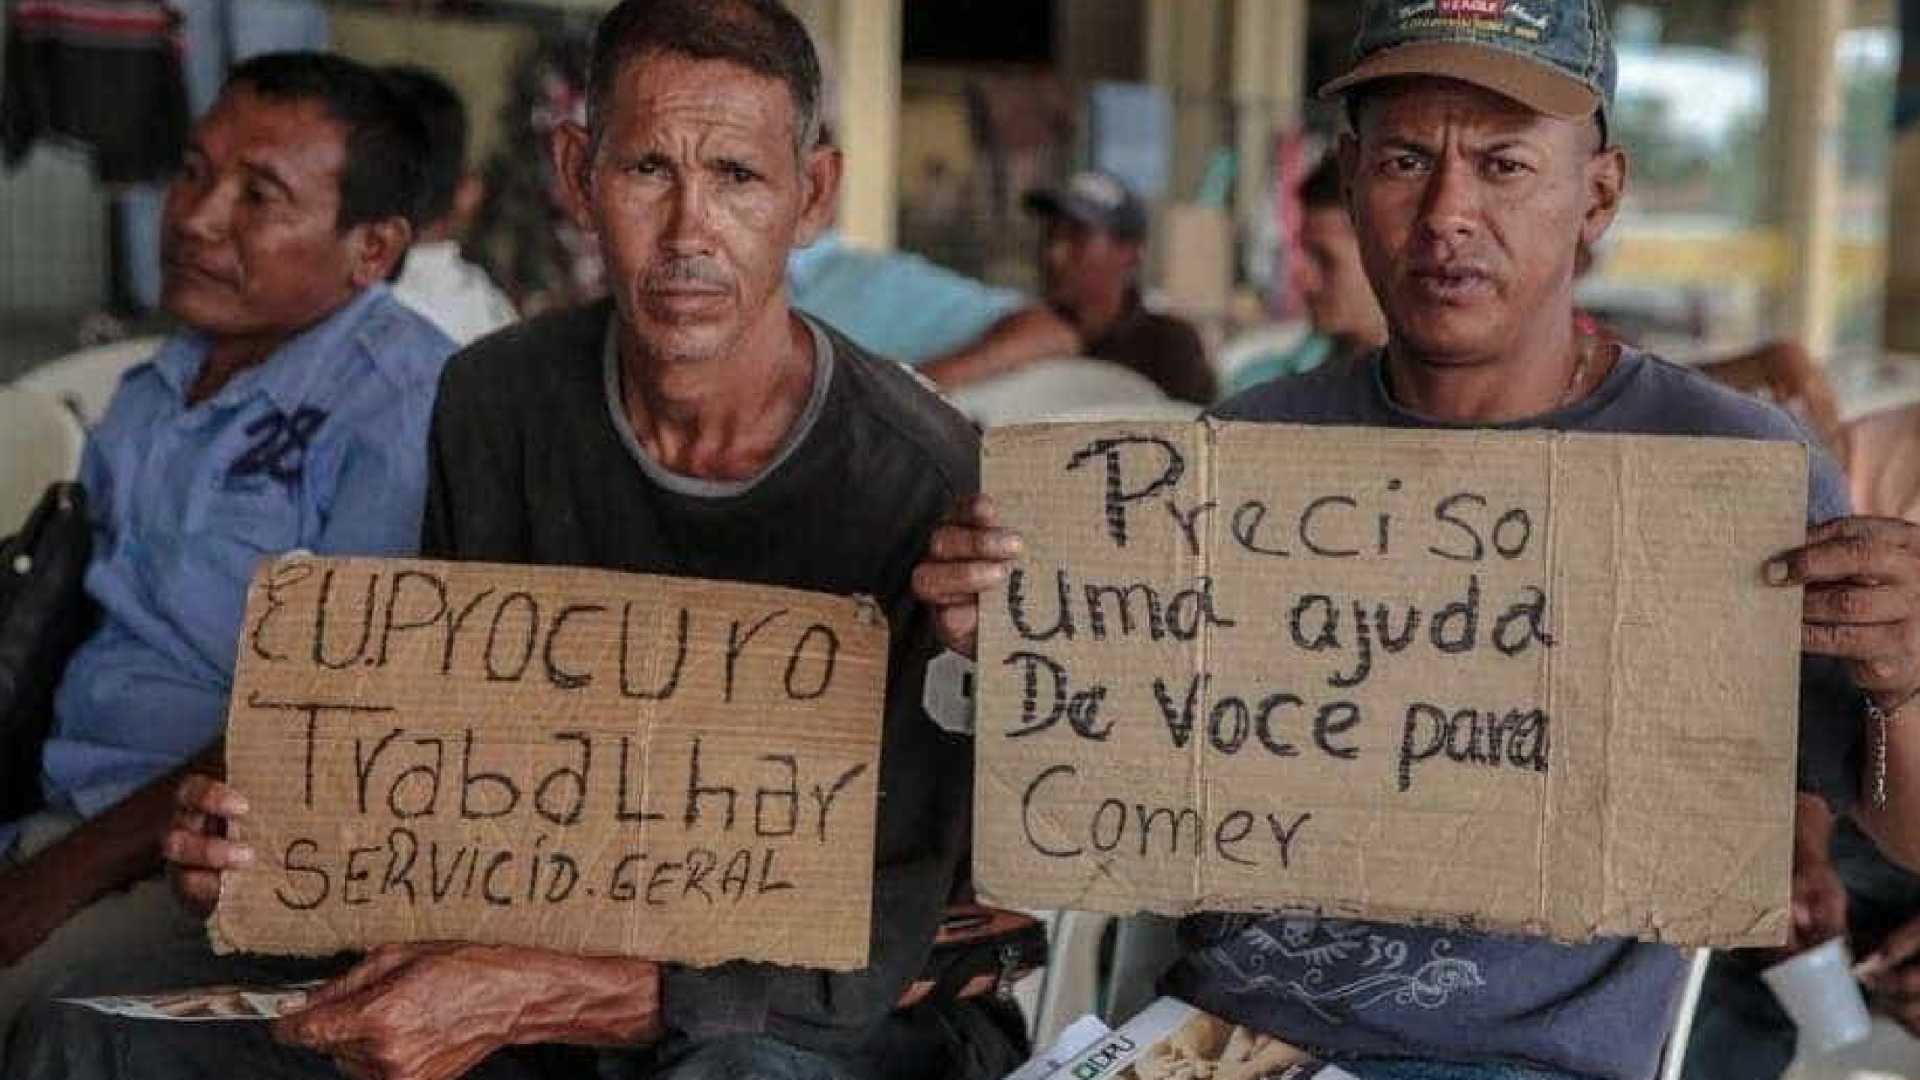 EU.Procuro
Trabalhar
SERVICIO.GERAL
Preciso
uma ajuda
De Voce para
Comer
28
EAGLE
39
DPU